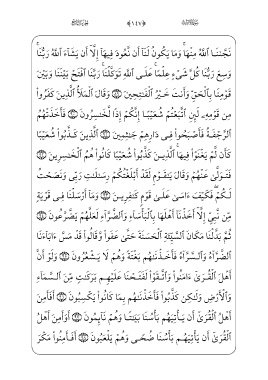 نَجَّىٰنَا ٱللَّهُ مِنْهَا وَمَا يَكُونُ لَنَآ أَن نَّعُودَ فِيهَآ إِلَّآ أَن يَشَآءَ ٱللَّهُ رَبُّنَا
وَسِعَ رَبُّنَا كُلَّ شَىْءٍ عِلْمًا عَلَى ٱللَّهِ تَوَكَّلْنَا رَبَّنَا ٱفْتَحْ بَيْنَنَا وَبَيْنَ
قَوْمِنَا بِٱلْحَقِّ وَأَنتَ خَيْرُ ٱلْفَٰتِحِينَ ۝ وَقَالَ ٱلْمَلَأُ ٱلَّذِينَ كَفَرُوا۟
مِن قَوْمِهِۦ لَئِنِ ٱتَّبَعْتُمْ شُعَيْبًا إِنَّكُمْ إِذًا لَّخَٰسِرُونَ ۝ فَأَخَذَتْهُمُ
ٱلرَّجْفَةُ فَأَصْبَحُوا۟ فِى دَارِهِمْ جَٰثِمِينَ ۝ ٱلَّذِينَ كَذَّبُوا۟ شُعَيْبًا
كَأَن لَّمْ يَغْنَوْا۟ فِيهَا ٱلَّذِينَ كَذَّبُوا۟ شُعَيْبًا كَانُوا۟ هُمُ ٱلْخَٰسِرِينَ ۝
فَتَوَلَّىٰ عَنْهُمْ وَقَالَ يَٰقَوْمِ لَقَدْ أَبْلَغْتُكُمْ رِسَٰلَٰتِ رَبِّى وَنَصَحْتُ
لَكُمْ فَكَيْفَ ءَاسَىٰ عَلَىٰ قَوْمٍ كَٰفِرِينَ ۝ وَمَآ أَرْسَلْنَا فِى قَرْيَةٍ
مِّن نَّبِىٍّ إِلَّآ أَخَذْنَآ أَهْلَهَا بِٱلْبَأْسَآءِ وَٱلضَّرَّآءِ لَعَلَّهُمْ يَضَّرَّعُونَ ۝
ثُمَّ بَدَّلْنَا مَكَانَ ٱلسَّيِّئَةِ ٱلْحَسَنَةَ حَتَّىٰ عَفَوا۟ وَّقَالُوا۟ قَدْ مَسَّ ءَابَآءَنَا
ٱلضَّرَّآءُ وَٱلسَّرَّآءُ فَأَخَذْنَٰهُم بَغْتَةً وَهُمْ لَا يَشْعُرُونَ ۝ وَلَوْ أَنَّ
أَهْلَ ٱلْقُرَىٰٓ ءَامَنُوا۟ وَٱتَّقَوْا۟ لَفَتَحْنَا عَلَيْهِم بَرَكَٰتٍ مِّنَ ٱلسَّمَآءِ
وَٱلْأَرْضِ وَلَٰكِن كَذَّبُوا۟ فَأَخَذْنَٰهُم بِمَا كَانُوا۟ يَكْسِبُونَ ۝ أَفَأَمِنَ
أَهْلُ ٱلْقُرَىٰٓ أَن يَأْتِيَهُم بَأْسُنَا بَيَٰتًا وَهُمْ نَآئِمُونَ ۝ أَوَأَمِنَ أَهْلُ
ٱلْقُرَىٰٓ أَن يَأْتِيَهُم بَأْسُنَا ضُحًى وَهُمْ يَلْعَبُونَ ۝ أَفَأَمِنُوا۟ مَكْرَ